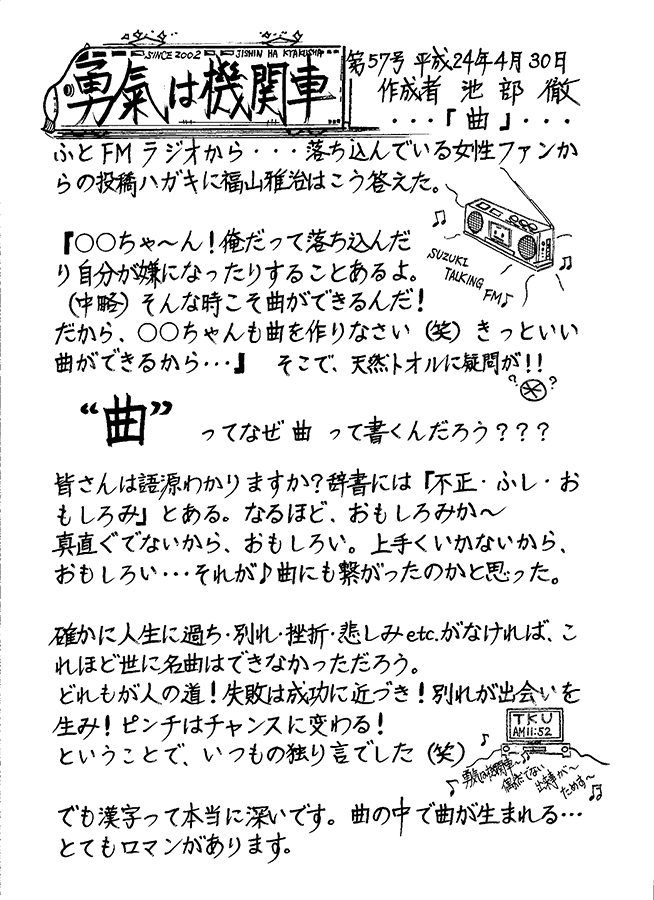 SINCE 2002 JISHIN HA KYAKUSHA
勇氣は機関車
第57号 平成24年4月30日
作成者 池部 徹
・・・『曲』・・・
ふとFMラジオから・・・落ち込んでいる女性ファンか
らの投稿ハガキに福山雅治はこう答えた。
『○○ちゃ〜ん！俺だって落ち込んだ
り自分が嫌になったりすることあるよ。
(中略) そんな時こそ曲ができるんだ！
だから、○○ちゃんも曲を作りなさい (笑) きっといい
曲ができるから・・・』 そこで、天然トオルに疑問が！！
SUZUKI
TALKING
FM♪
? ?
“曲” ってなぜ 曲 って書くんだろう？？？
皆さんは語源わかりますか？辞書には『不正・ふし・お
もしろみ』とある。なるほど、おもしろみか〜
真直ぐでないから、おもしろい。上手くいかないから、
おもしろい・・・それが♪曲にも繋がったのかと思った。
確かに人生に過ち・別れ・挫折・悲しみetc.がなければ、こ
れほど世に名曲はできなかっただろう。
どれもが人の道！失敗は成功に近づき！別れが出会いを
生み！ピンチはチャンスに変わる！
ということで、いつもの独り言でした (笑)
TKU
AM11:52
勇気は機関車〜♪
偶然でない
出来事が〜
ためす〜
でも漢字って本当に深いです。曲の中で曲が生まれる・・・
とてもロマンがあります。